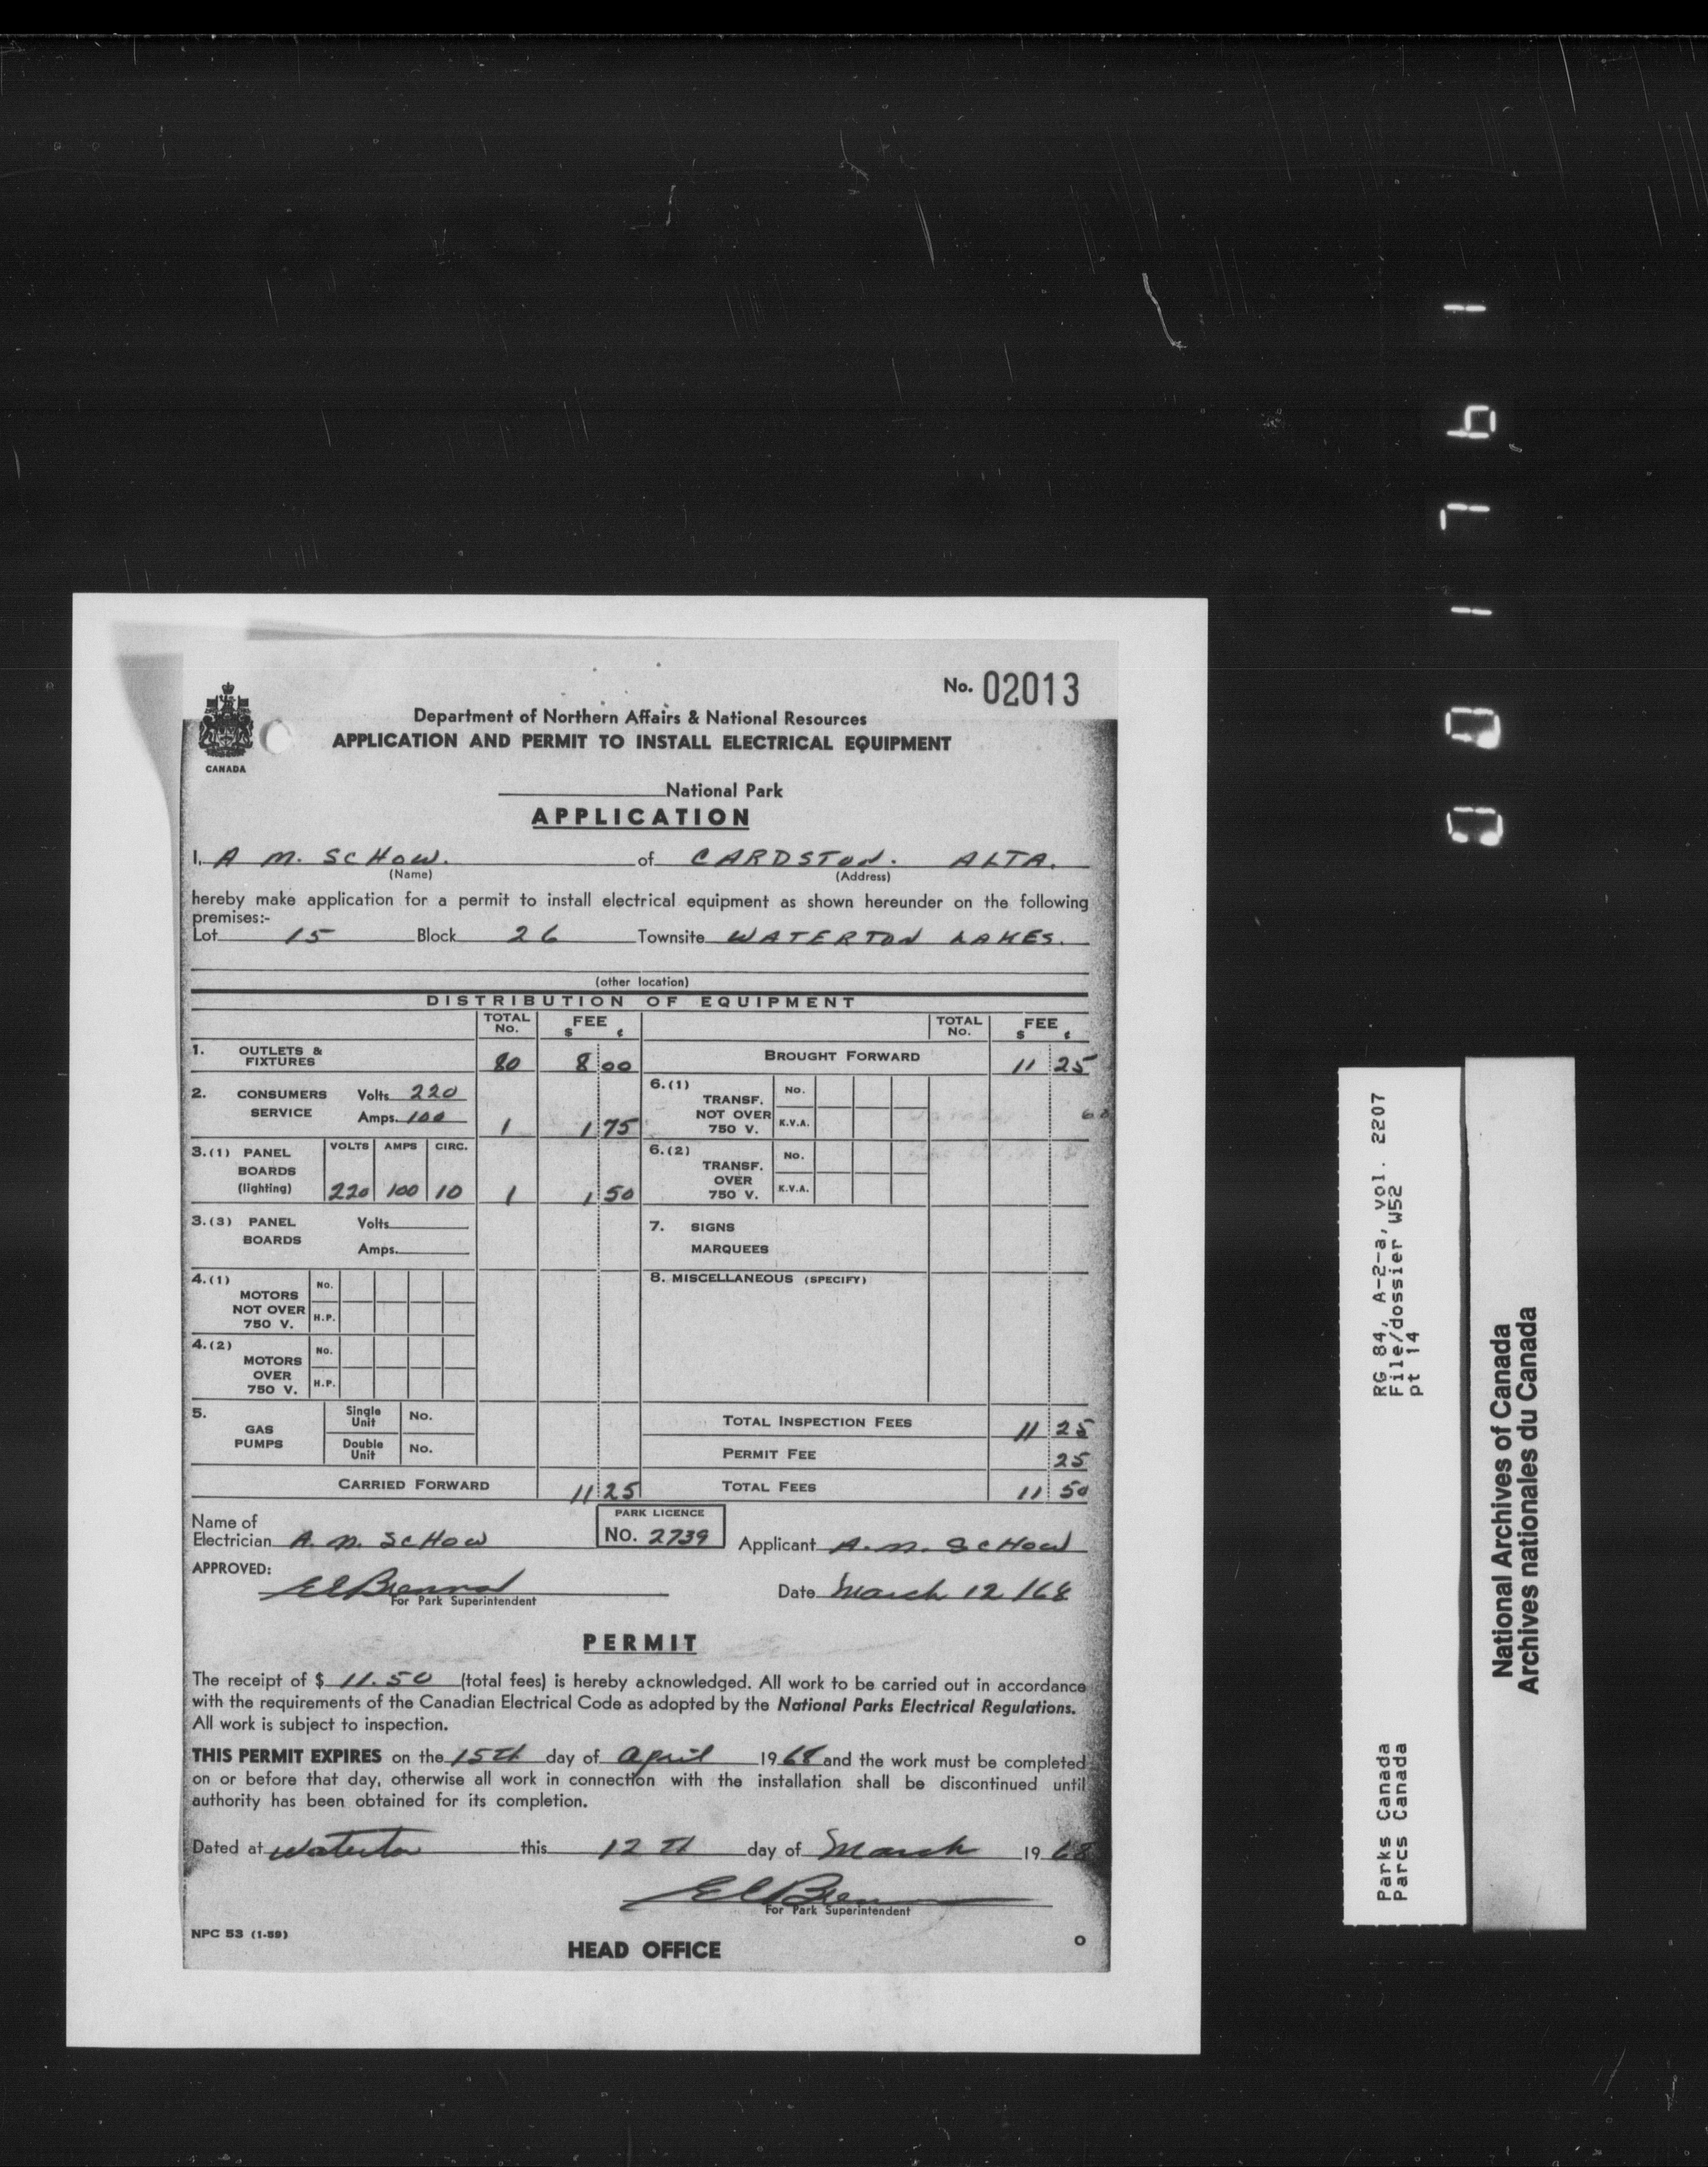 No. 02013
CANADA
Department of Northern Affairs & National Resources
APPLICATION AND PERMIT TO INSTALL ELECTRICAL EQUIPMENT
National Park
APPLICATION
I, A M. SCHOW. of CARDSTON. ALTA.
(Name) (Address)
hereby make application for a permit to install electrical equipment as shown hereunder on the following
premises:-
Lot 15 Block 26 Townsite WATERTON LAKES.
(other location)
DISTRIBUTION OF EQUIPMENT
TOTAL No. FEE $ ¢ TOTAL No. FEE $ ¢
1. OUTLETS & FIXTURES 80 8 00
BROUGHT FORWARD 11 25
2. CONSUMERS SERVICE Volts 220 Amps. 100 1 1 75
6.(1) TRANSF. NOT OVER 750 V. No. K.V.A.
3.(1) PANEL BOARDS (lighting) VOLTS AMPS CIRC. 220 100 10 1 1 50
6.(2) TRANSF. OVER 750 V. No. K.V.A.
3.(3) PANEL BOARDS Volts Amps.
7. SIGNS MARQUEES
4.(1) MOTORS NOT OVER 750 V. No. H.P.
8. MISCELLANEOUS (SPECIFY)
4.(2) MOTORS OVER 750 V. No. H.P.
5. GAS PUMPS Single Unit No. Double Unit No.
TOTAL INSPECTION FEES 11 25
PERMIT FEE 25
CARRIED FORWARD 11 25 TOTAL FEES 11 50
Name of
Electrician A. M. SCHOW
PARK LICENCE
NO. 2739
Applicant A. M. SCHOW
APPROVED:
For Park Superintendent
Date March 12/68
PERMIT
The receipt of $ 11.50 (total fees) is hereby acknowledged. All work to be carried out in accordance
with the requirements of the Canadian Electrical Code as adopted by the National Parks Electrical Regulations.
All work is subject to inspection.
THIS PERMIT EXPIRES on the 15th day of April 1968 and the work must be completed
on or before that day, otherwise all work in connection with the installation shall be discontinued until
authority has been obtained for its completion.
Dated at Waterton this 12 TH day of March 1968
For Park Superintendent
NPC 53 (1-59)
HEAD OFFICE
RG 84, A-2-a, vol. 2207
File/dossier W52
pt 14
Parks Canada
Parcs Canada
National Archives of Canada
Archives nationales du Canada